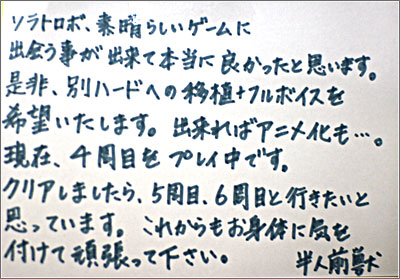 ソラトロボ、素晴らしいゲームに
出会う事が出来て本当に良かったと思います。
是非、別ハードへの移植+フルボイスを
希望いたします。出来ればアニメ化も…。
現在、4周目をプレイ中です。
クリアしましたら、5周目、6周目と行きたいと
思っています。これからもお身体に気を
付けて頑張って下さい。 半人前獣